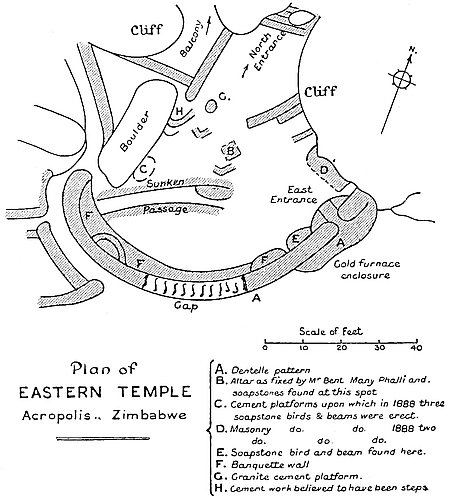 Cliff
Balcony
North
Entrance
N.
H
G.
Cliff
Boulder
B
C
D
Sunken
East
Entrance
Passage
F
E
A
F
F
Gold furnace
enclosure
Gap
A
Scale of feet
0 10 20 30 40
Plan of
EASTERN TEMPLE
Acropolis.. Zimbabwe
A. Dentelle pattern
B. Altar as fixed by Mr Bent. Many Phalli and.
soapstones found at this spot
C. Cement platforms upon which in 1888 three
soapstone birds & beams were erect.
D. Masonry do. do. 1888 two
do. do. do.
E. Soapstone bird and beam found here.
F. Banquette wall
G. Granite cement platform.
H. Cement work believed to have been steps